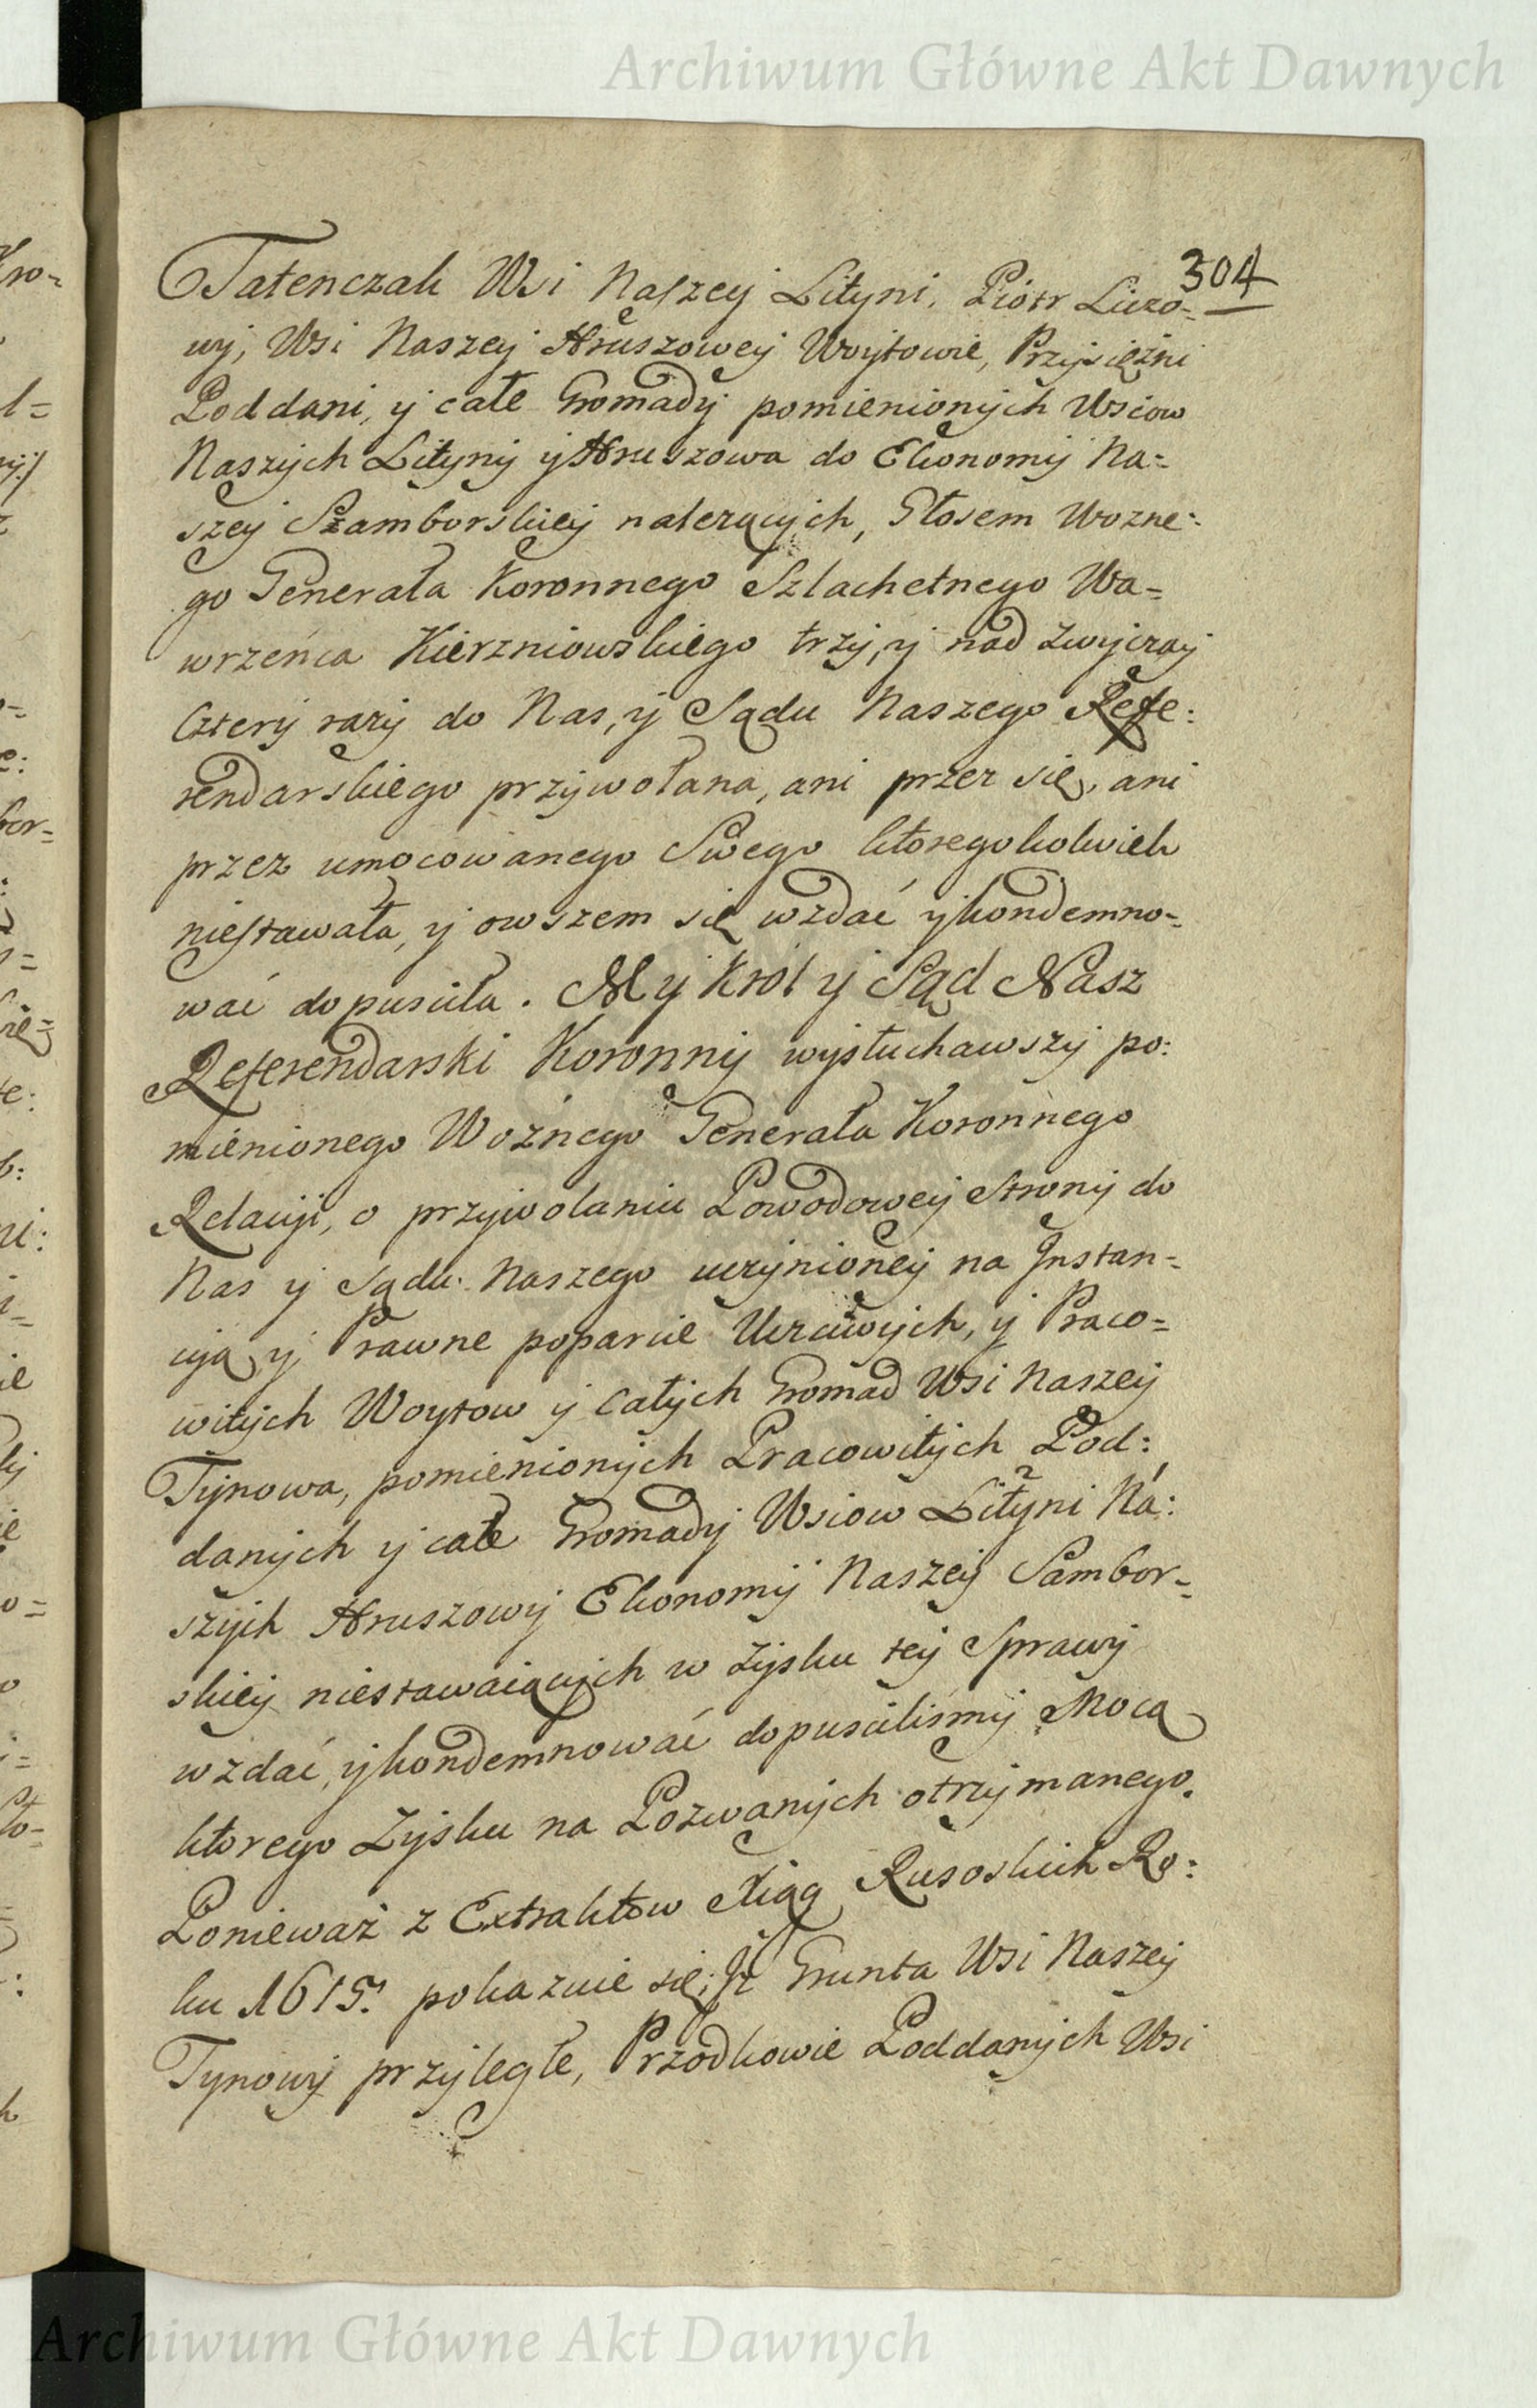 Archiwum Główne Akt Dawnych
304
Tatenczak Wsi Naszey Lityni, Piotr Liczo=
wy, Wsi Naszey Hruszowey Woytowie, Przysiężni
Poddani, y całe Gromady pomienionych Wsiow
Naszych Lityny y Hruszowa do Ekonomij Na=
szey Szamborskiey należących, Głosem Wozne:
go Generała Koronnego Szlachetnego Wa=
wrzenca Kierzniowskiego trzy, y nad zwyczay
Cztery razy do Nas, y Sądu Naszego Refe:
rendarskiego przywołana, ani przez się, ani
przez umocowanego Swego ktoregokolwiek
niestawała, y owszem się wzdać y kondemno=
wać dopuściła. My Krol y Sąd Nasz
Referendarski Koronny wysłuchawszy po:
mienionego Woźnego Generała Koronnego
Relacyi, o przywołaniu Powodowey Strony do
Nas y Sądu Naszego uczynioney na Instan=
cyą y Prawne poparcie Uczciwych, y Praco=
witych Woytow y całych Gromad Wsi Naszey
Tynowa, pomienionych Pracowitych Pod:
danych y całe Gromady Wsiow Lityni Na:
szych Hruszowy Ekonomij Naszey Sambor=
skiey niestawaiących w zysku tey Sprawy
wzdać, y kondemnować dopuściliśmy Mocą
ktorego Zysku na Pozwanych otrzymanego.
Ponieważ z Extraktow Xiąg Rusoskich Ro:
ku 1615. pokazuie się; Iż Grunta Wsi Naszey
Tynowy przyległe, Przodkowie Poddanych Wsi
Archiwum Główne Akt Dawnych